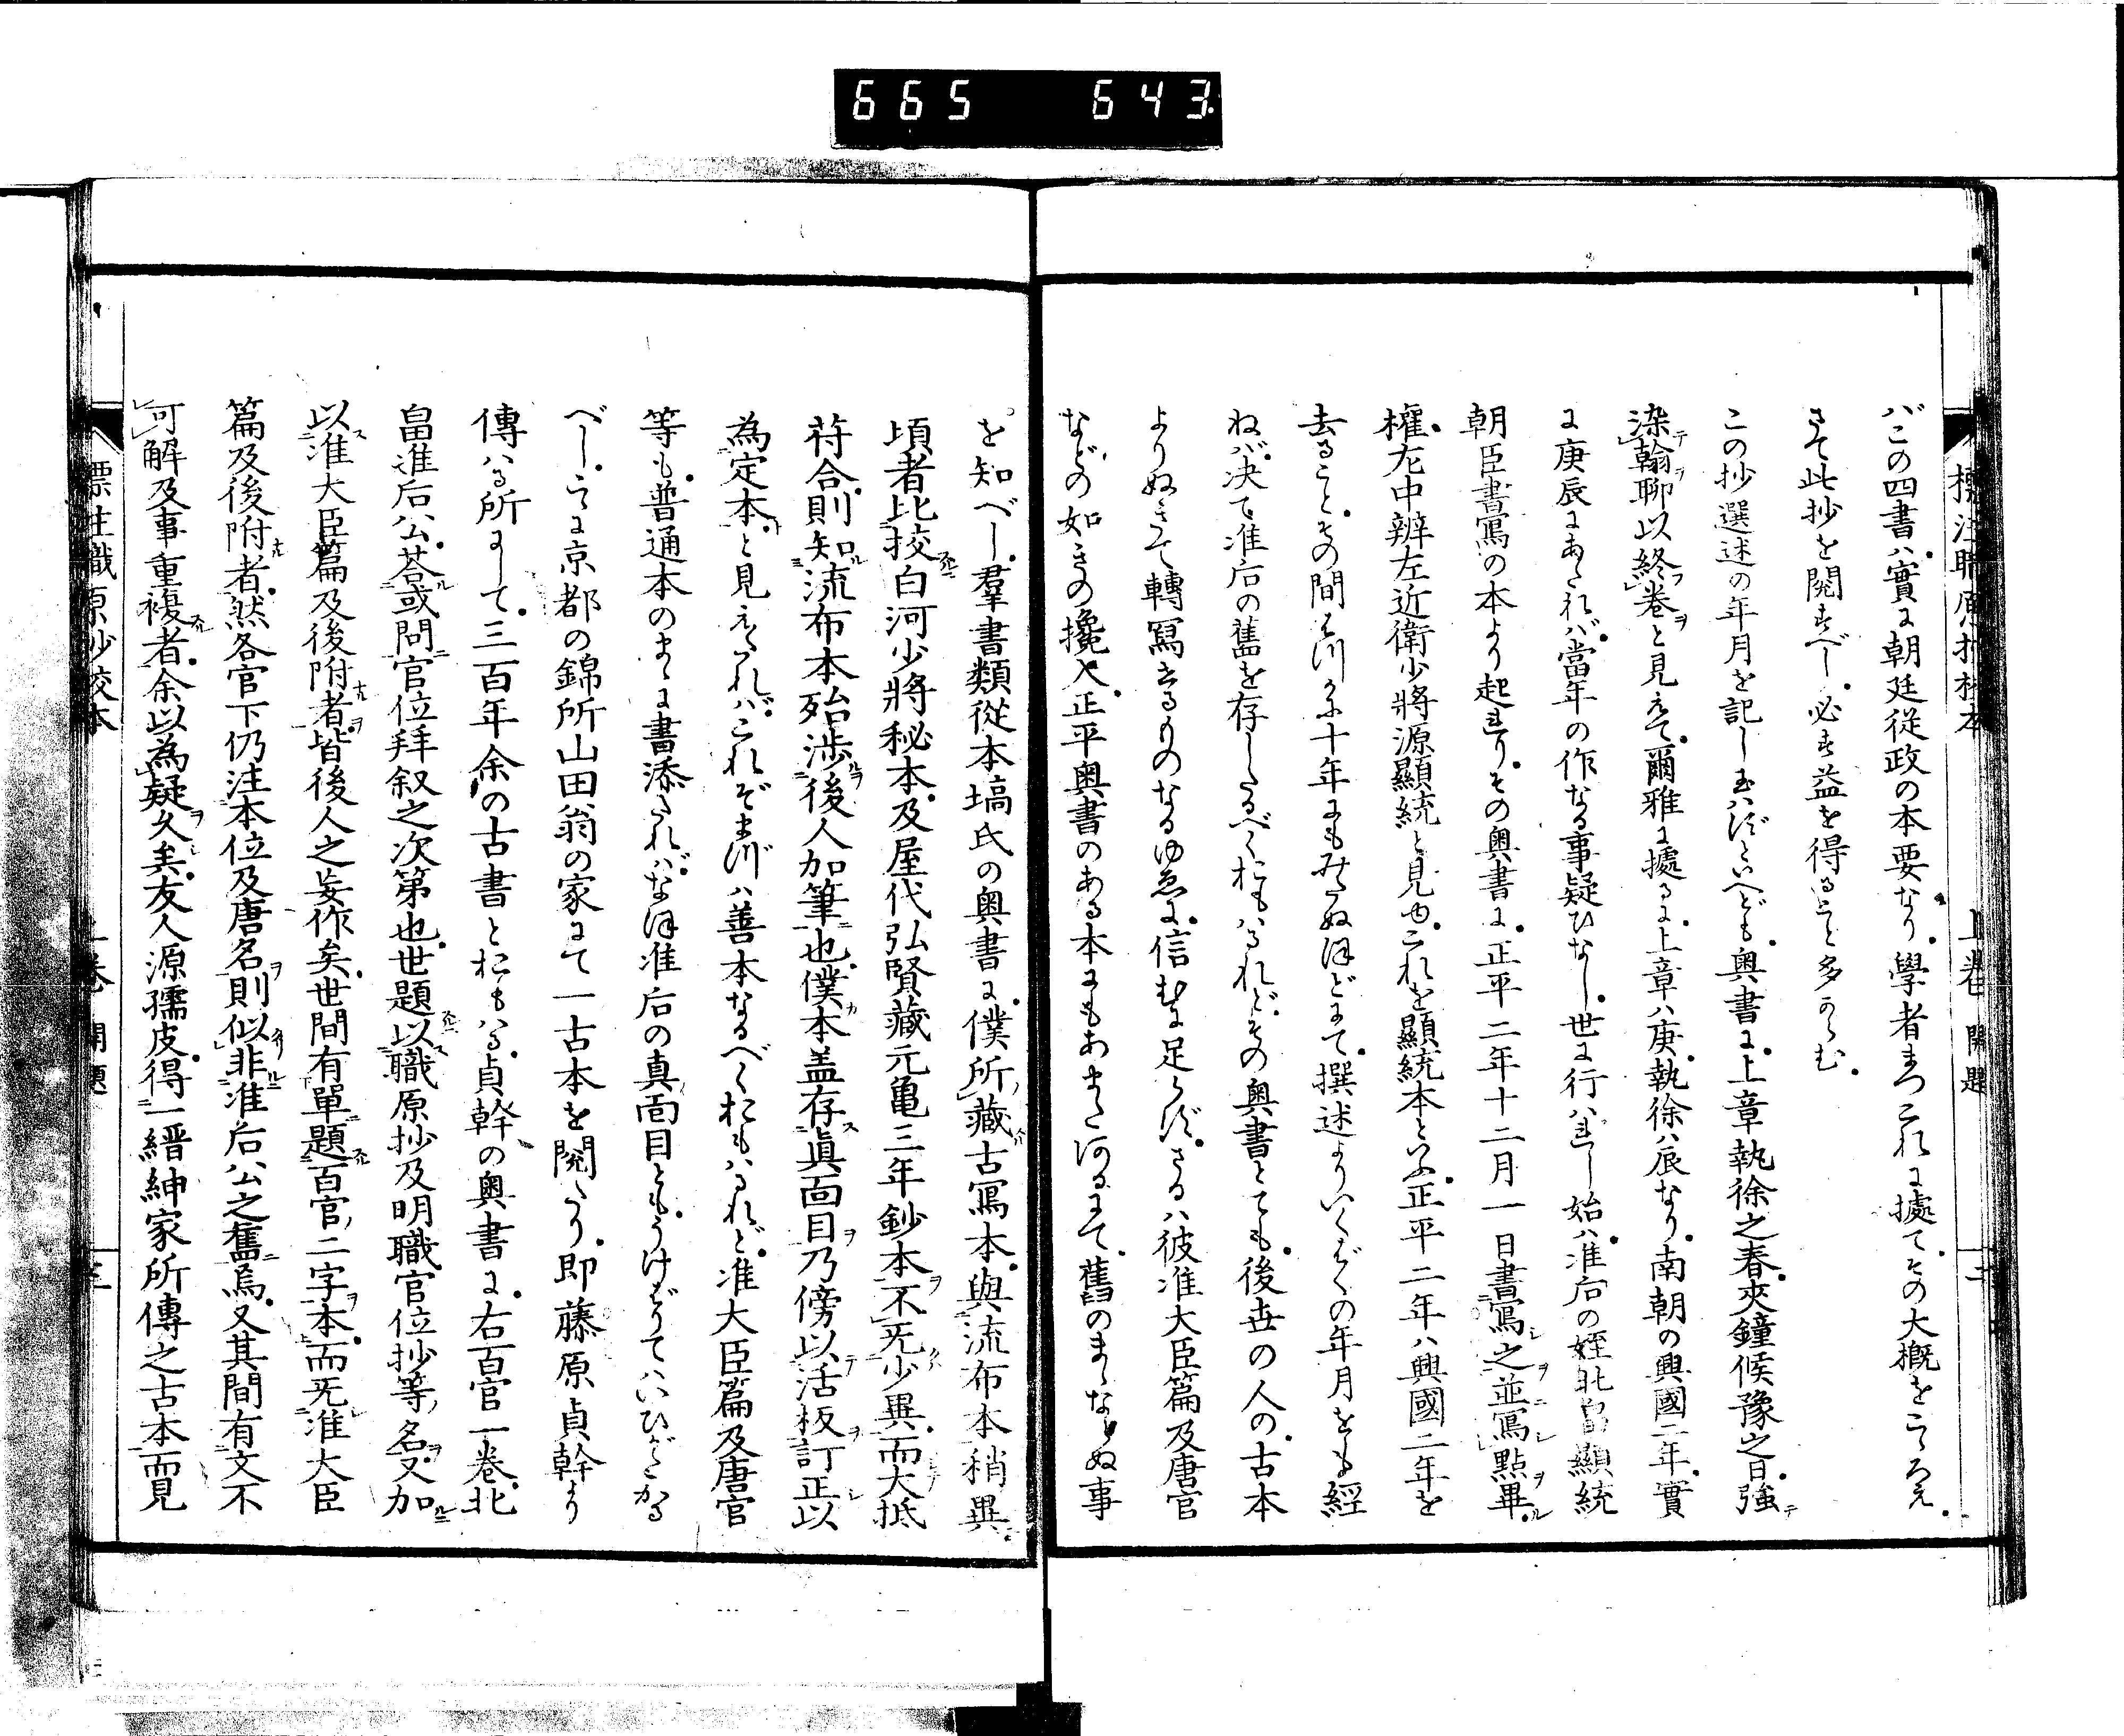 665 643
標注職原抄校本 上巻 開題 二
バこの四書ハ實に朝廷従政の本要なり學者まづこれに據てその大概をこゝろえ
さて此抄を閲すべし必す益を得ること多からむ
この抄選述の年月を記し玉ハずといへども奥書に上章執徐之春夾鐘候豫之日強
染翰聊以終巻と見えて爾雅に據るに上章ハ庚執徐ハ辰なり南朝の興國二年實
に庚辰にあたれバ當年の作なる事疑ひなし世に行ハれし始ハ准后の姪北畠顯統
朝臣書寫の本より起れりその奥書に正平二年十二月一日書寫之並寫點畢
權左中辨左近衛少將源顯統と見ゆこれを顯統本といふ正平二年ハ興國二年を
去ることその間はつかに十年にもみたぬほどにて撰述よりいくばくの年月をも經
ねバ決て准后の舊を存したるべくおもハるれどその奥書とても後世の人の古本
よりぬきて轉寫せるものなるゆゑに信むに足らずさるハ彼准大臣篇及唐官
などの如きの攙入正平奥書のある本にもあまたあるにて舊のまゝならぬ事
を知べし羣書類從本塙氏の奥書に僕所藏古寫本與流布本稍異
頃者比挍白河少將秘本及屋代弘賢藏元亀三年鈔本不旡少異而大抵
符合則知流布本殆渉後人加筆也僕本盖存眞面目乃傍以活板訂正以
為定本と見えたれバこれぞまづハ善本なるべくおもハるれど准大臣篇及唐官
等も普通本のまゝに書添たれバなほ准后の真面目ともうけばりてハいひがたかる
べしこゝに京都の錦所山田翁の家にて一古本を閲たり即藤原貞幹より
傳ハる所にして三百年余の古書とおもハる貞幹の奥書に右百官一巻北
畠准后公荅或問官位拜叙之次第也世題以職原抄及明職官位抄等名又加
以准大臣篇及後附者皆後人之妄作矣世間有單題百官二字本而旡准大臣
篇及後附者然各官下仍注本位及唐名則似非准后公之舊焉又其間有文不
可解及事重複者余以為疑久矣友人源孺皮得一縉紳家所傳之古本而見
標注職原抄校本 上巻 開題 三